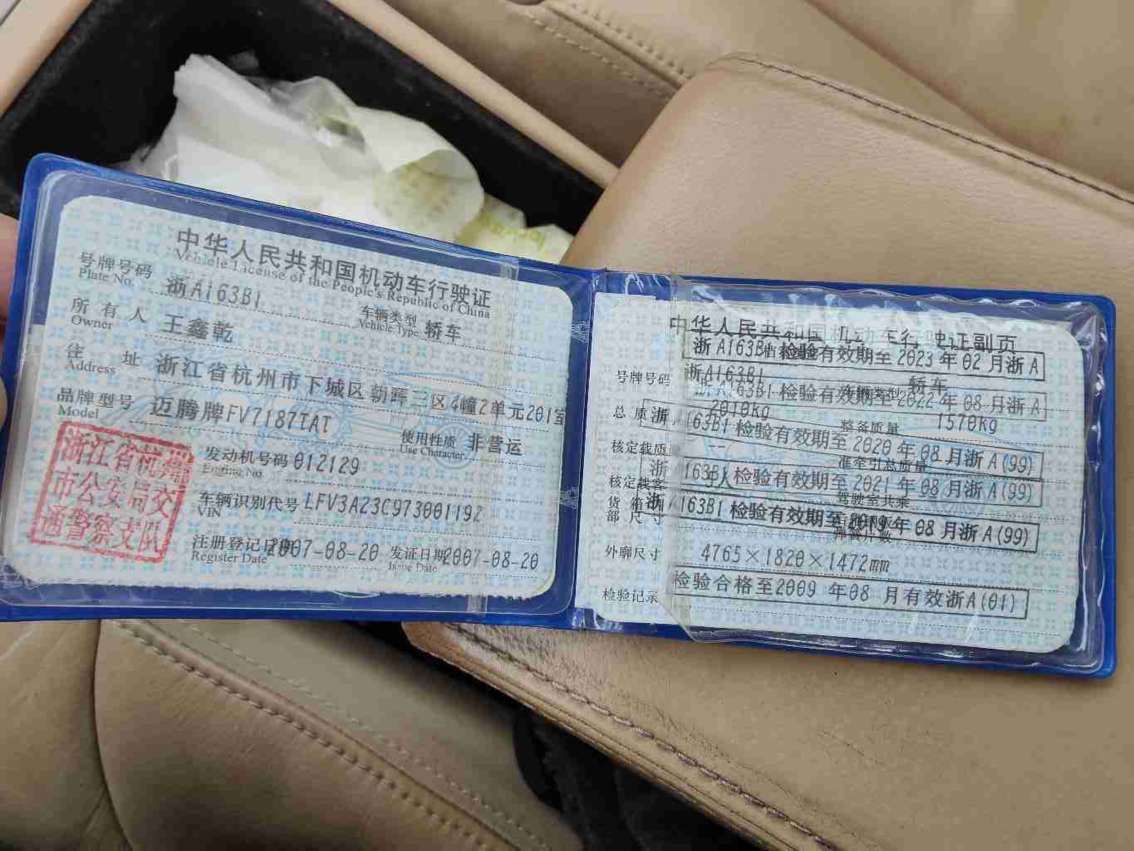 中华人民共和国机动车行驶证
Vehicle License of the People's Republic of China
号牌号码 浙A163B1 车辆类型 轿车
Plate No. Vehicle Type
所有人 王鑫乾
Owner
住址 浙江省杭州市下城区 三区4幢2单元201室
Address
品牌型号 迈腾牌FV7187TAT 使用性质 非营运
Model Use Character
发动机号码 012129
Engine No.
车辆识别代号 LFV3A23C973001192
VIN
注册登记日期 2007-08-20 发证日期 2007-08-20
Register Date Issue Date
浙江省杭州
市公安局交
通警察支队
中华人民共和国机动车行驶证副页
浙A163B1 检验有效期至2023年02月浙A
号牌号码 浙A163B1 车辆类型 轿车
浙A163B1 检验有效期至2022年08月浙A
总质量 2010Kg 整备质量 1570Kg
浙A163B1 检验有效期至2020年08月浙A(99)
核定载质量 -- 准牵引总质量
浙A163B1 检验有效期至2021年08月浙A(99)
核定载客 驾驶室共乘
浙A163B1 检验有效期至2019年08月浙A(99)
货箱内部尺寸
外廓尺寸 4765×1820×1472mm
检验记录 检验合格至2009年08月有效浙A(01)